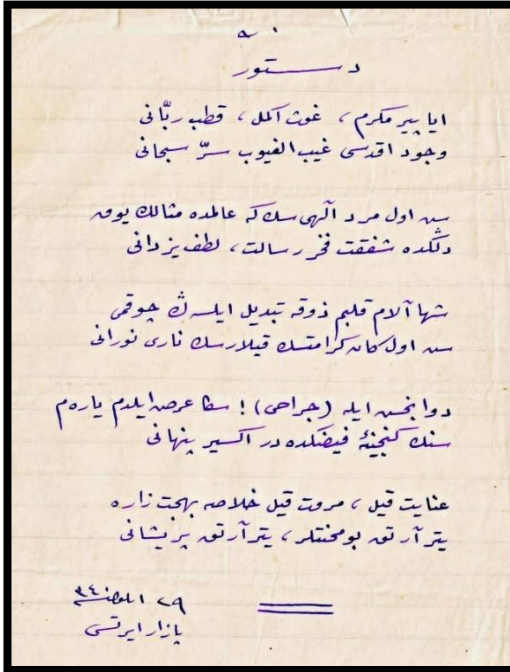 دستور
ايا پير مكرم ، غوث اكمل ، قطب ربّانى
وجود اقدسى غيب الغيوب سرّ سبحانى
سن اول مرد آلهى سك كه عالمده مثالك يوق
دلكده شفقت فخر رسالت ، لطف يزدانى
شها آلام قلبم ذوقه تبديل ايلسه ڭ چوقمى
سن اول كان كرامتسك قيلارسك نارى نورانى
دوا بخش ايله (جراحى) ! سكا عرض ايلدم ياره م
سنك گنجينهٔ فيضكده در اكسير پنهانى
عنايت قيل ، مروت قيل خلاصه بهجت زاره
يتر آرتق بو محنتلر ، يتر آرتق پريشانى
٢٩ ٣٤
پازار ايرتسى